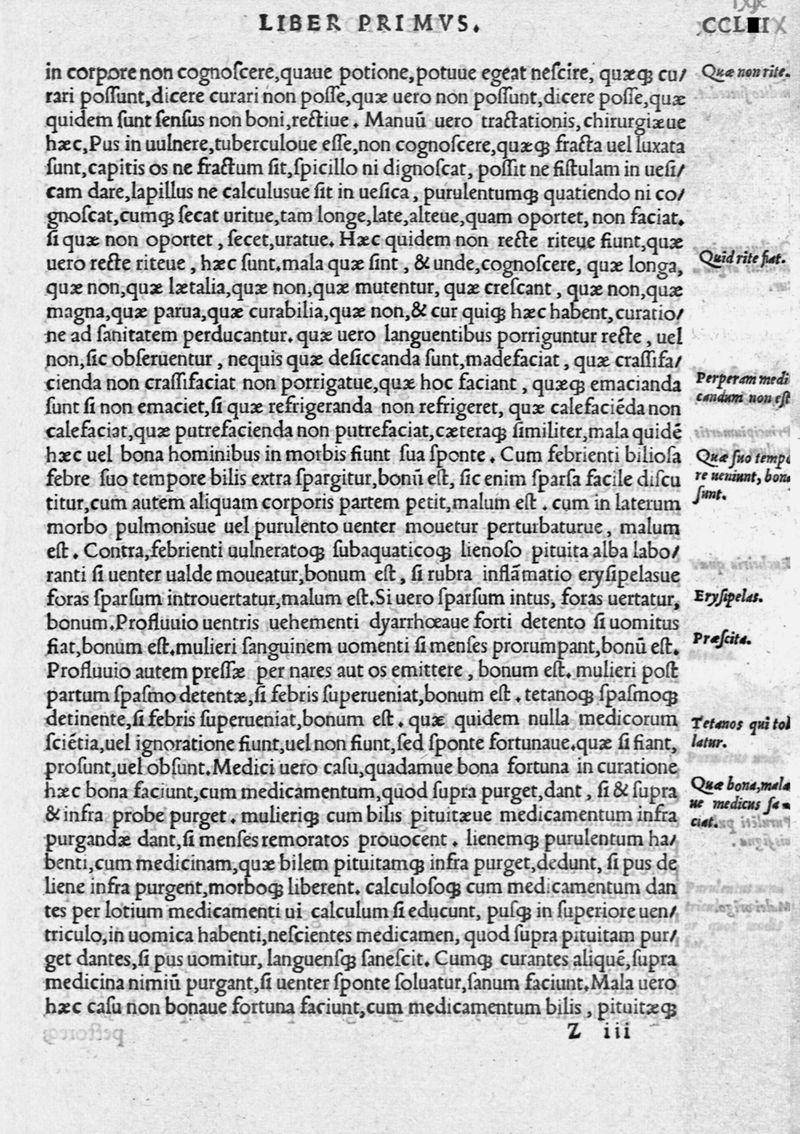 LIBER PRIMVS.
in corpore non cognoſcere,quaue potione,potuue egeat neſcire, quæq; cu/
rari poſſunt,dicere curari non poſſe,quæ uero non poſſunt,dicere poſſe,quæ
quidem ſunt ſenſus non boni,rectiue. Manuū uero tractationis,chirurgiæue
hæc,Pus in uulnere,tuberculoue eſſe,non cognoſcere,quæq; fracta uel luxata
ſunt,capitis os ne fractum ſit,ſpicillo ni dignoſcat, poſſit ne fiſtulam in ueſi/
cam dare,lapillus ne calculusue ſit in ueſica, purulentumq; quatiendo ni co/
gnoſcat,cumq; ſecat uritue,tam longe,late,alteue,quam oportet, non faciat.
ſi quæ non oportet, ſecet,uratue. Hæc quidem non recte riteue fiunt,quæ
uero recte riteue, hæc ſunt.mala quæ ſint, & unde,cognoſcere, quæ longa,
quæ non,quæ lætalia,quæ non,quæ mutentur, quæ creſcant, quæ non,quæ
magna,quæ parua,quæ curabilia,quæ non,& cur quiq; hæc habent,curatio/
ne ad ſanitatem perducantur. quæ uero languentibus porriguntur recte, uel
non,ſic obſeruentur, nequis quæ deſiccanda ſunt,madefaciat, quæ craſſifa/
cienda non craſſifaciat non porrigatue,quæ hoc faciant, quæq; emacianda
ſunt ſi non emaciet,ſi quæ refrigeranda non refrigeret, quæ calefaciēda non
calefaciat,quæ putrefacienda non putrefaciat,cæteraq; ſimiliter,mala quidē
hæc uel bona hominibus in morbis fiunt ſua ſponte. Cum febrienti bilioſa
febre ſuo tempore bilis extra ſpargitur,bonū eſt, ſic enim ſparſa facile diſcu
titur,cum autem aliquam corporis partem petit,malum eſt. cum in laterum
morbo pulmonisue uel purulento uenter mouetur perturbaturue, malum
eſt. Contra,febrienti uulneratoq; ſubaquaticoq; lienoſo pituita alba labo/
ranti ſi uenter ualde moueatur,bonum eſt, ſi rubra inflāmatio eryſipelasue
foras ſparſum introuertatur,malum eſt.Si uero ſparſum intus, foras uertatur,
bonum.Profluuio uentris uehementi dyarrhœaue forti detento ſi uomitus
fiat,bonum eſt.mulieri ſanguinem uomenti ſi menſes prorumpant,bonū eſt.
Profluuio autem preſſæ per nares aut os emittere, bonum eſt. mulieri poſt
partum ſpaſmo detentæ,ſi febris ſuperueniat,bonum eſt. tetanoq; ſpaſmoq;
detinente,ſi febris ſuperueniat,bonum eſt. quæ quidem nulla medicorum
ſciētia,uel ignoratione fiunt,uel non fiunt,ſed ſponte fortunaue.quæ ſi fiant,
proſunt,uel obſunt.Medici uero caſu,quadamue bona fortuna in curatione
hæc bona faciunt,cum medicamentum,quod ſupra purget,dant, ſi & ſupra
& infra probe purget. mulieriq; cum bilis pituitæue medicamentum infra
purgandæ dant,ſi menſes remoratos prouocent. lienemq; purulentum ha/
benti,cum medicinam,quæ bilem pituitamq; infra purget,dedunt, ſi pus de
liene infra purgent,morboq; liberent. calculoſoq; cum medicamentum dan
tes per lotium medicamenti ui calculum ſi educunt, puſq; in ſuperiore uen/
triculo,in uomica habenti,neſcientes medicamen, quod ſupra pituitam pur/
get dantes,ſi pus uomitur, languenſq; ſaneſcit. Cumq; curantes aliquē,ſupra
medicina nimiū purgant,ſi uenter ſponte ſoluatur,ſanum faciunt.Mala uero
hæc caſu non bonaue fortuna faciunt,cum medicamentum bilis, pituitæq;
Z iii
Quæ non rite.
Quid rite fiat.
Perperam medi
candum non eſt
Quæ ſuo tempo
re ueniunt, bona
ſunt.
Eryſipelas.
Præſcita.
Tetanos qui tol
latur.
Quæ bona,mala
ue medicus fa
ciat.